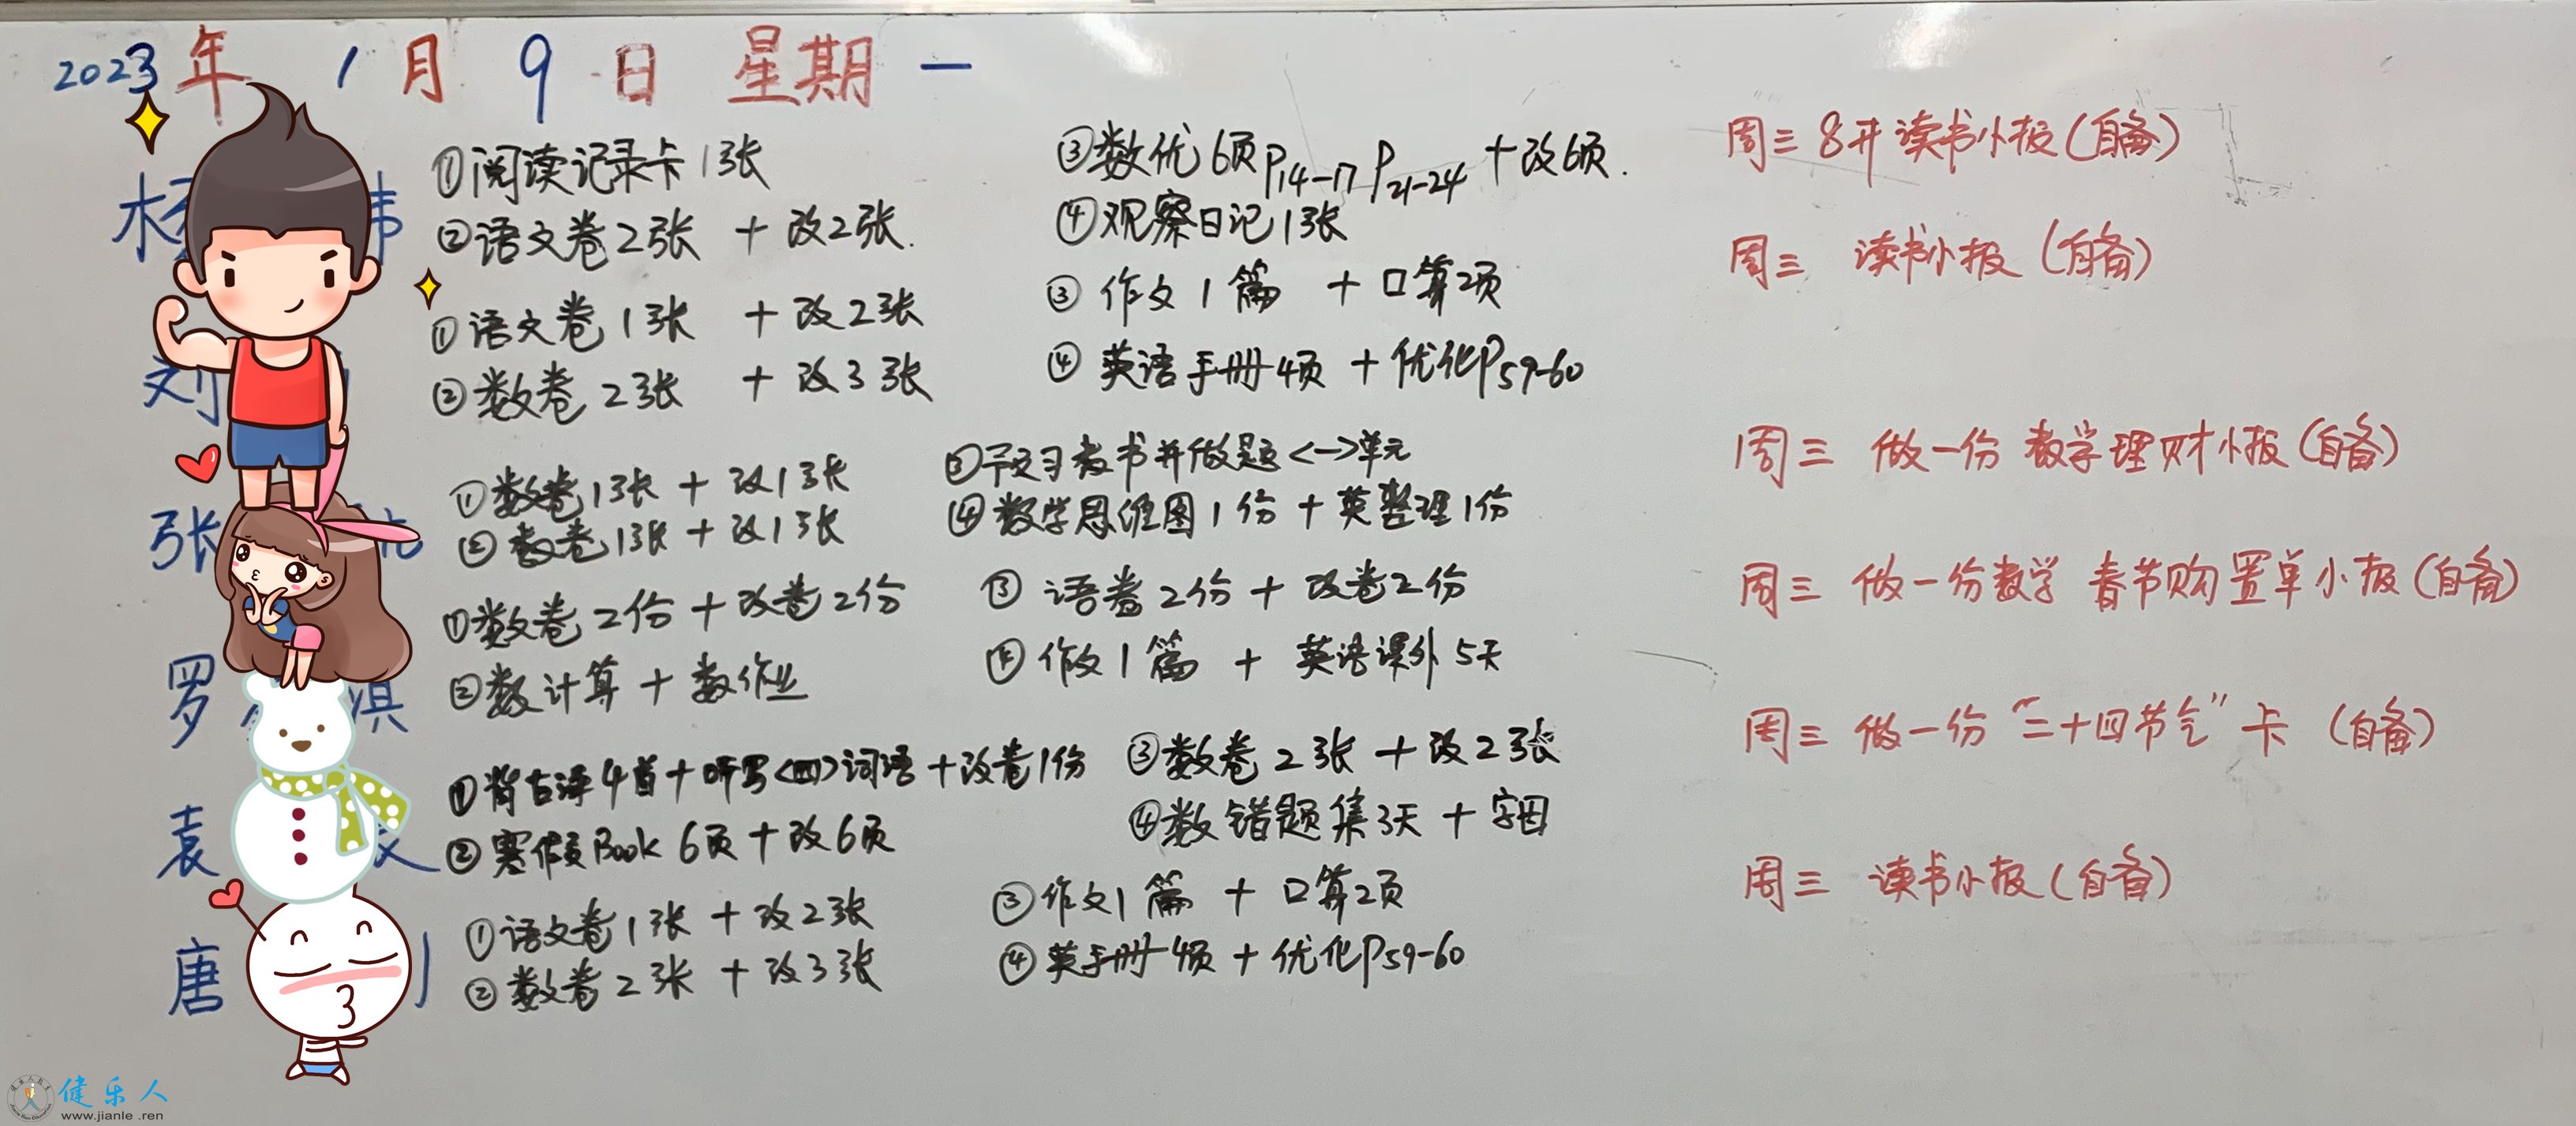 2023年 1月 9日 星期一
①阅读记录卡1张 ③数优6页P14-17 P21-24 +改6页. 周三 8开读书小报(自备)
②语文卷2张 +改2张. ④观察日记1张
①语文卷1张 +改2张 ③作文1篇 +口算2页 周三 读书小报(自备)
刘
②数卷2张 +改3张 ④英语手册4页 +优化P59-60
张 ①数卷1张+改1张 ③预习数书并做题<一>单元 周三 做一份数学理财小报(自备)
②数卷1张+改1张 ④数学思维图1份+英整理1份
①数卷2份+改卷2份 ③语卷2份+改卷2份 周三 做一份数学 春节购置单小报(自备)
罗 淇 ②数计算+数作业 ④作文1篇 + 英语课外5天
①背古诗4首+听写<四>词语+改卷1份 ③数卷2张+改2张 周三 做一份“二十四节气”卡(自备)
袁 ②寒假Book 6页+改6页 ④数错题集3天+字母
①语文卷1张+改2张 ③作文1篇 + 口算2页 周三 读书小报(自备)
唐 ②数卷2张+改3张 ④英手册4页+优化P59-60
健乐人
www.jianle.ren